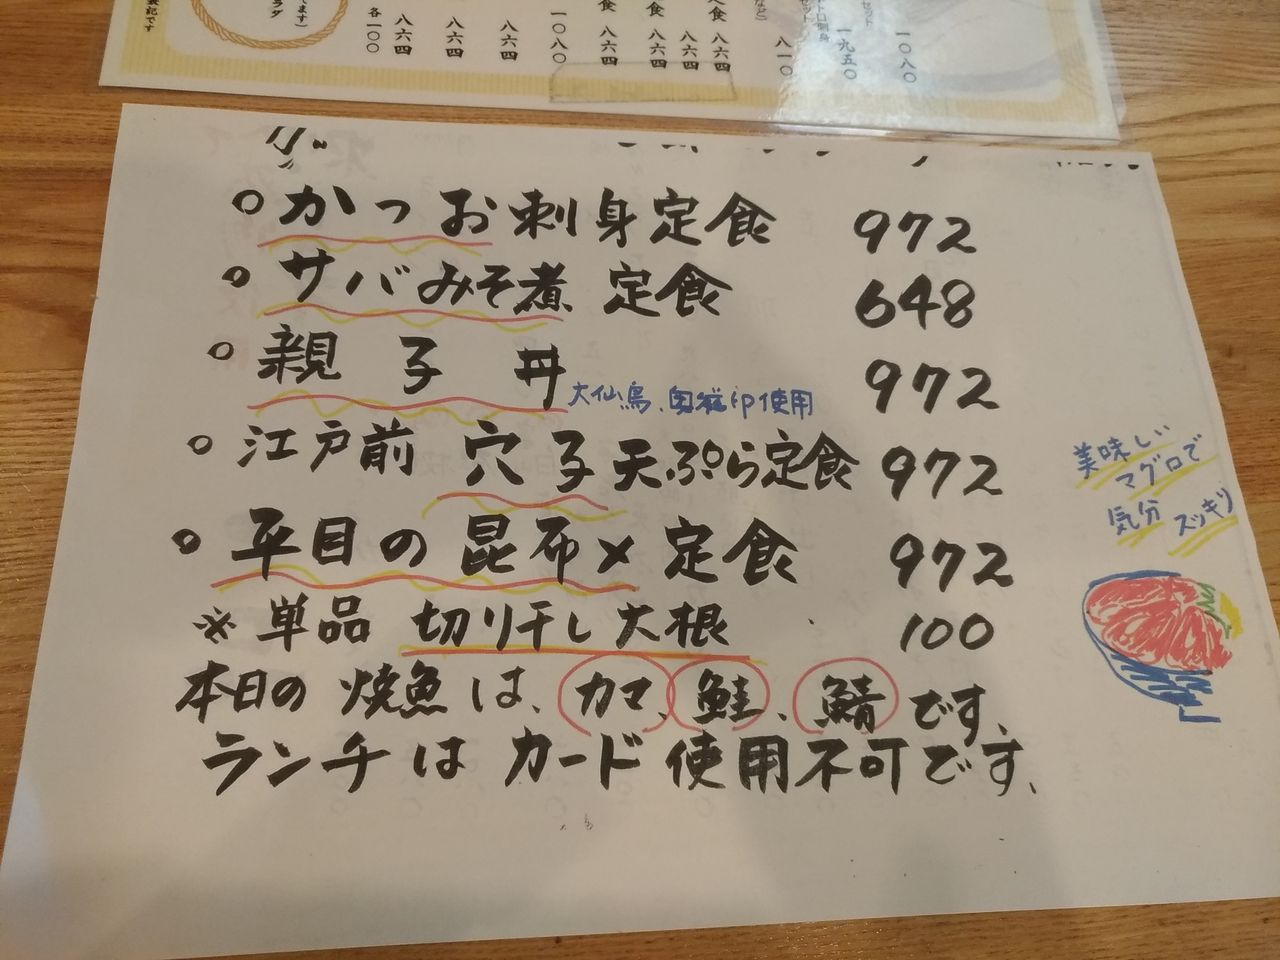 一〇八〇
一九五〇
八一〇
八六四
八六四
八六四
八六四
一〇八〇
八六四
八六四
八六四
各一〇〇
かつお刺身定食 972
サバみそ煮 定食 648
親子丼 972
大仙鳥、奥
使用
江戸前 穴子天ぷら定食 972
平目の昆布〆定食 972
※単品 切り干し大根 100
本日の焼魚は、カマ、鮭、鯖です、
ランチはカード使用不可です、
美味しい
マグロで
気分
スッキリ